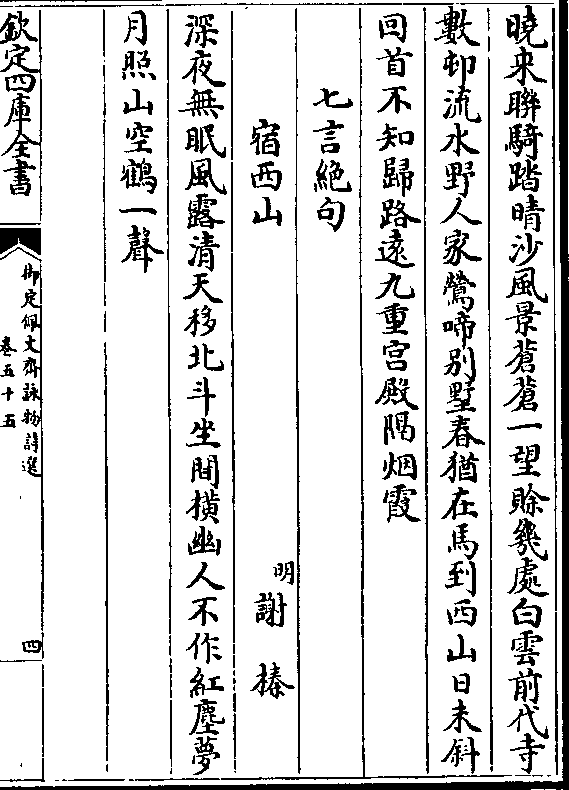 曉来聨騎踏晴沙風景蒼蒼一望賖幾處白雲前代寺
數邨流水野人家鶯啼别墅春猶在馬到西山日未斜
回首不知歸路遠九重宫殿隔烟霞
七言絶句
宿西山
明謝榛
深夜無眠風露清天移北斗坐間横幽人不作紅塵夢
月照山空鶴一聲
欽定四庫全書
御定佩文齋詠物詩選
卷五十五
四